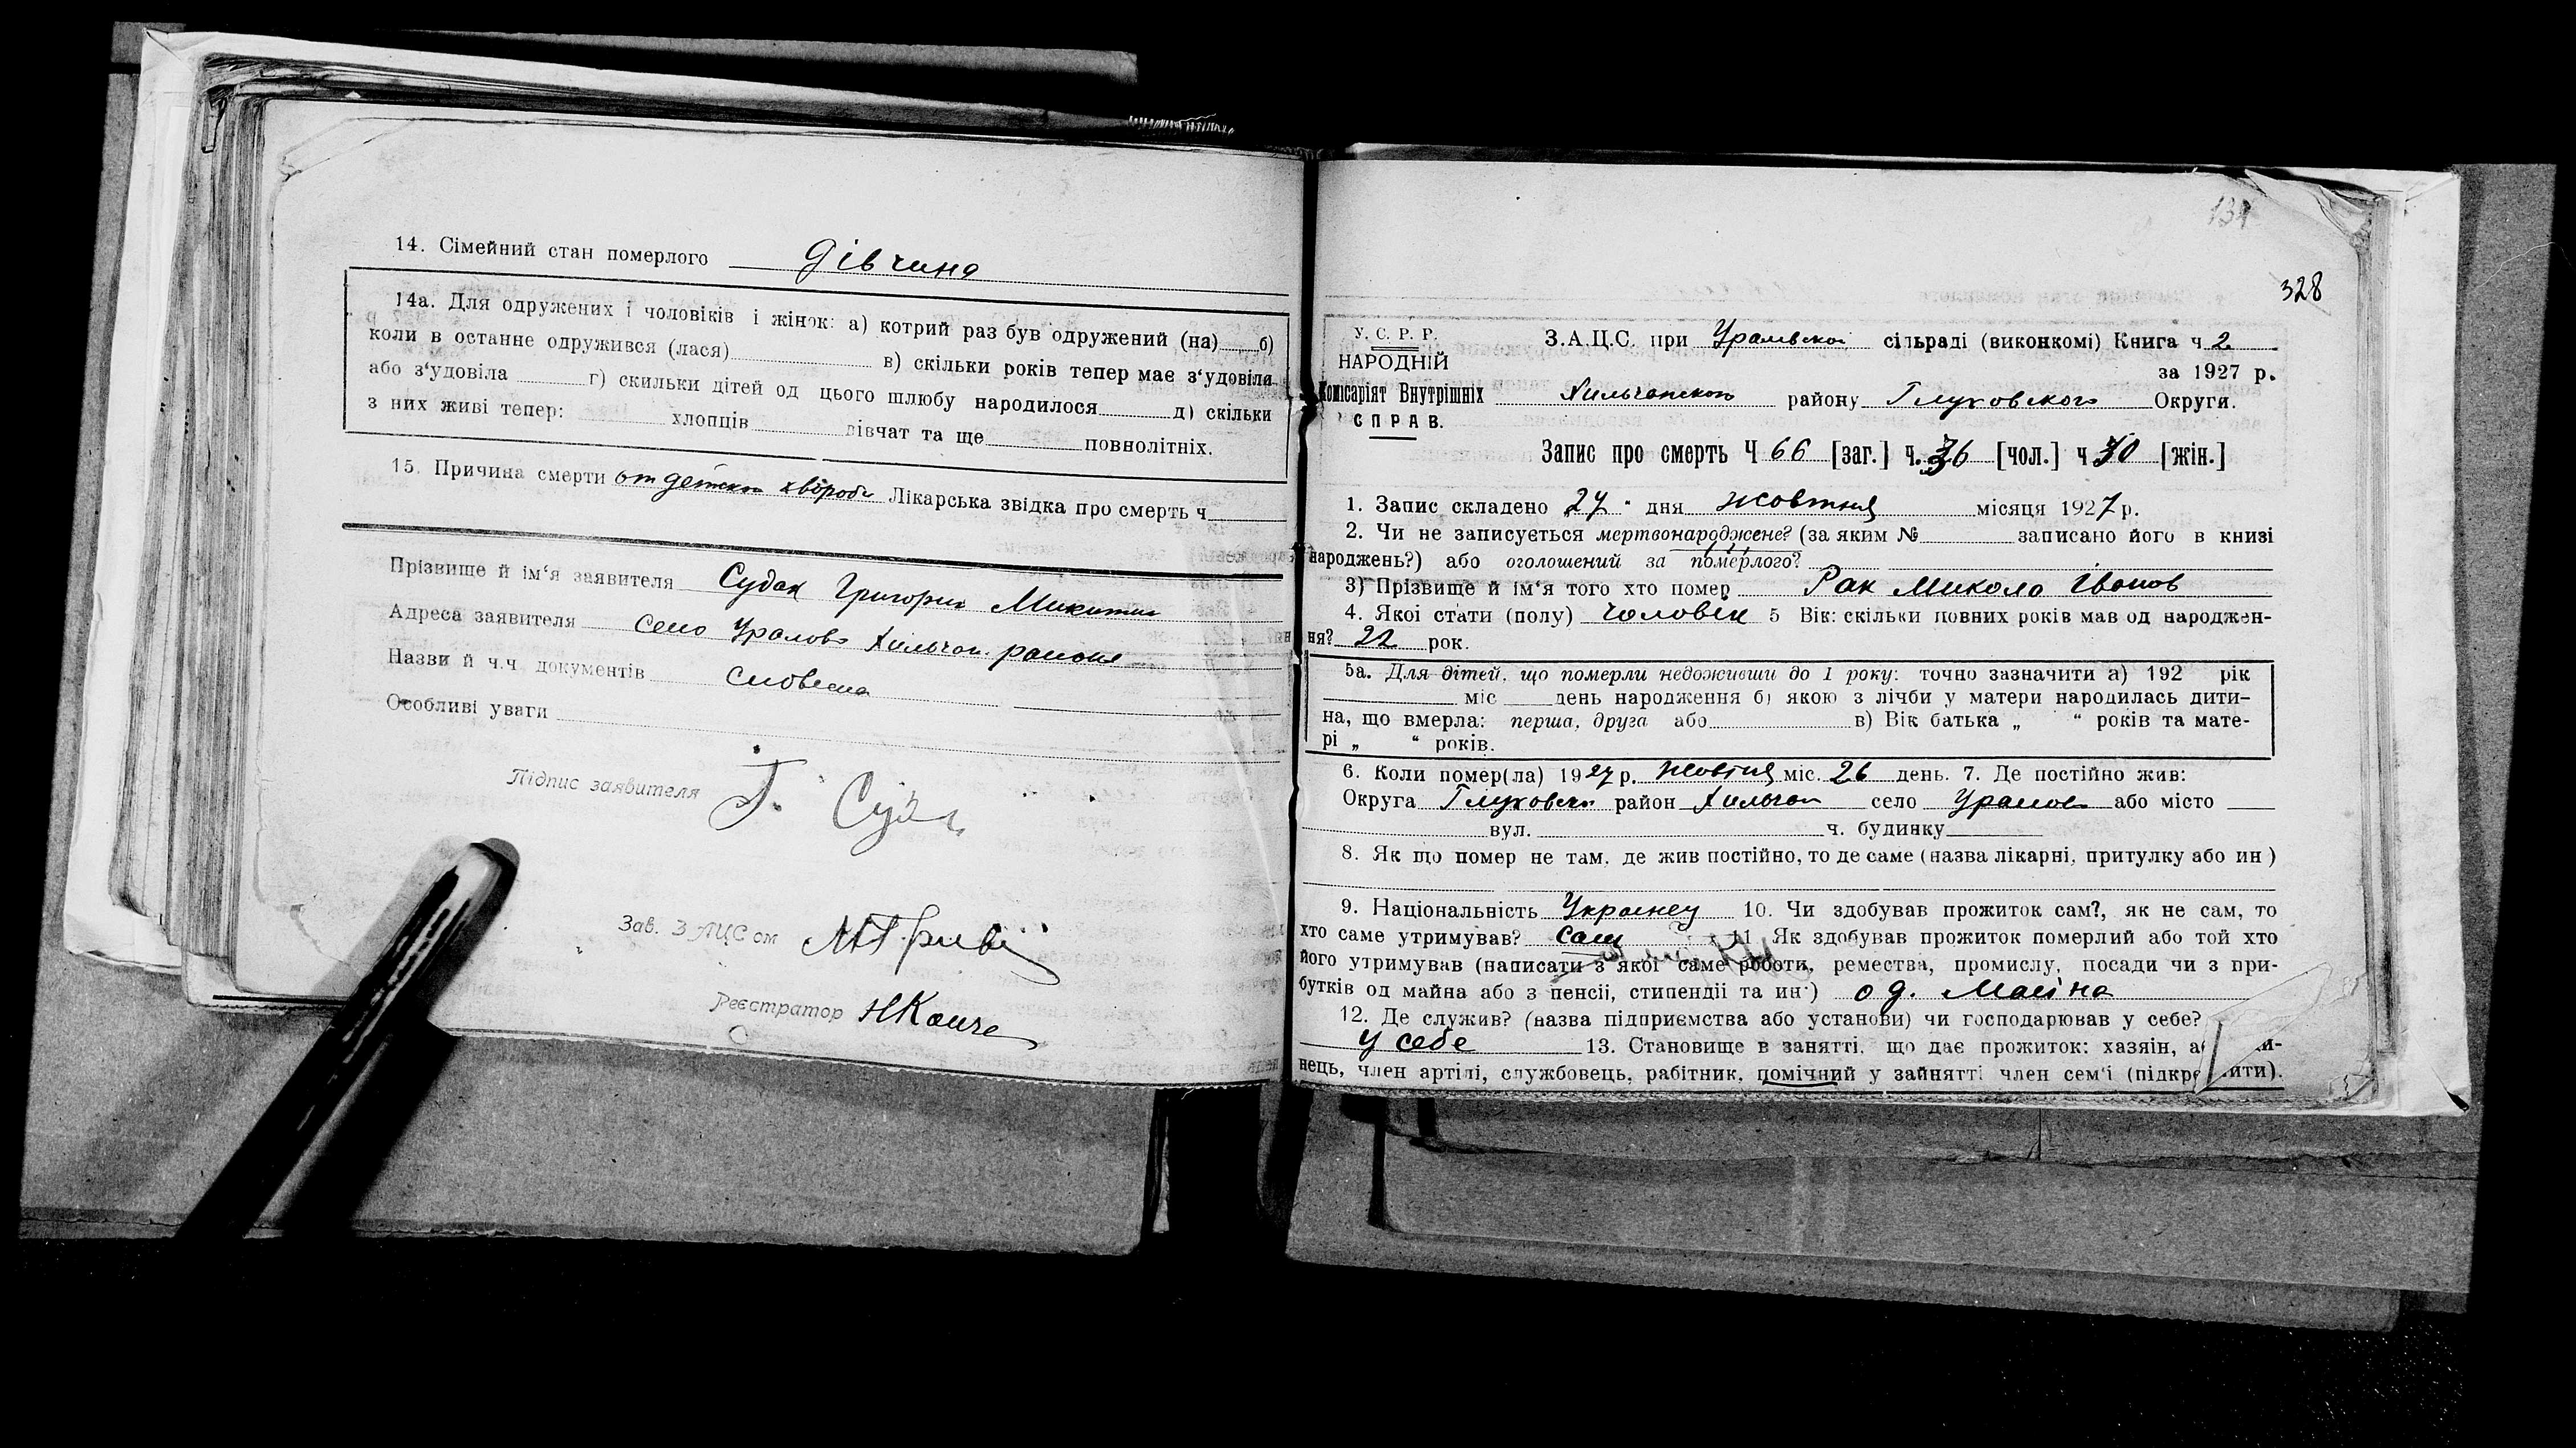 14. Сімейний стан померлого дівчина
14а. Для одружених і чоловіків і жінок: а) котрий раз був одружений (на) б)
коли в останне одружився (лася) в) скільки років тепер має з‘удовіла
або з‘удовіла г) скильки дітей од цього шлюбу народилося д) скільки
з них живі тепер: хлопців дівчат та ще повнолітніх.
15. Причина смерти от детскои хвороби Лікарська звідка про смерть ч
Прізвище й ім‘я заявителя Судак Григорий Микитин
Адреса заявителя село Уралово Хильчан. района
Назви й ч.ч документів Словесна
Особливі уваги
Підпис заявителя Г. Суда
Зав. ЗАЦСом
Реєстратор
134
328
У. С. Р. Р.
НАРОДНІЙ
Комісаріят Внутрішніх
СПРАВ.
З.А.Ц.С. при сільраді (виконкомі) Книга ч 2
за 1927 р.
Хильчанского району Глуховского Округи.
Запис про смерть Ч 66 [заг.] ч. 36 [чол.] ч 30 [жін.]
1. Запис складено 27 " дня жовтня місяця 1927 р.
2. Чи не записується мертвонароджене? (за яким № записано його в книзі
народжень?) або оголошений за померлого?
3) Прізвище й ім‘я того хто помер Рак Микола Іванов
4. Якої стати (полу) чоловік 5 Вік: скільки повних років мав од народжен-
ня? 22 рок.
5а. Для дітей, що померли недоживши до 1 року: точно зазначити а) 192 рік
міс день народження б) якою з лічби у матери народилась дити-
на, що вмерла: перша, друга або в) Вік батька „ “ років та мате-
рі „ “ років.
6. Коли помер(ла) 1927 р. жовтня міс. 26 день. 7. Де постійно жив:
Округа Глуховско район Хильчан село Уралов або місто
вул. ч. будинку
8. Як що помер не там, де жив постійно, то де саме (назва лікарні, притулку або ин)
9. Національність Украінец 10. Чи здобував прожиток сам?, як не сам, то
хто саме утримував? сам 11 Як здобував прожиток померлий або той хто
його утримував (написати з якої саме роботи, ремества, промислу, посади чи з при-
бутків од майна або з пенсіі, стипендіі та ин·) од. Маіна
12. Де служив? (назва підприємства або установи) чи господарював у себе?
у себе 13. Становище в занятті, що дає прожиток: хазяін,
нець, член артілі, службовець, рабітник, помічний у зайнятті член сем‘і (підкре ити).